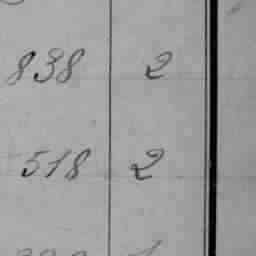 838 2
518 2